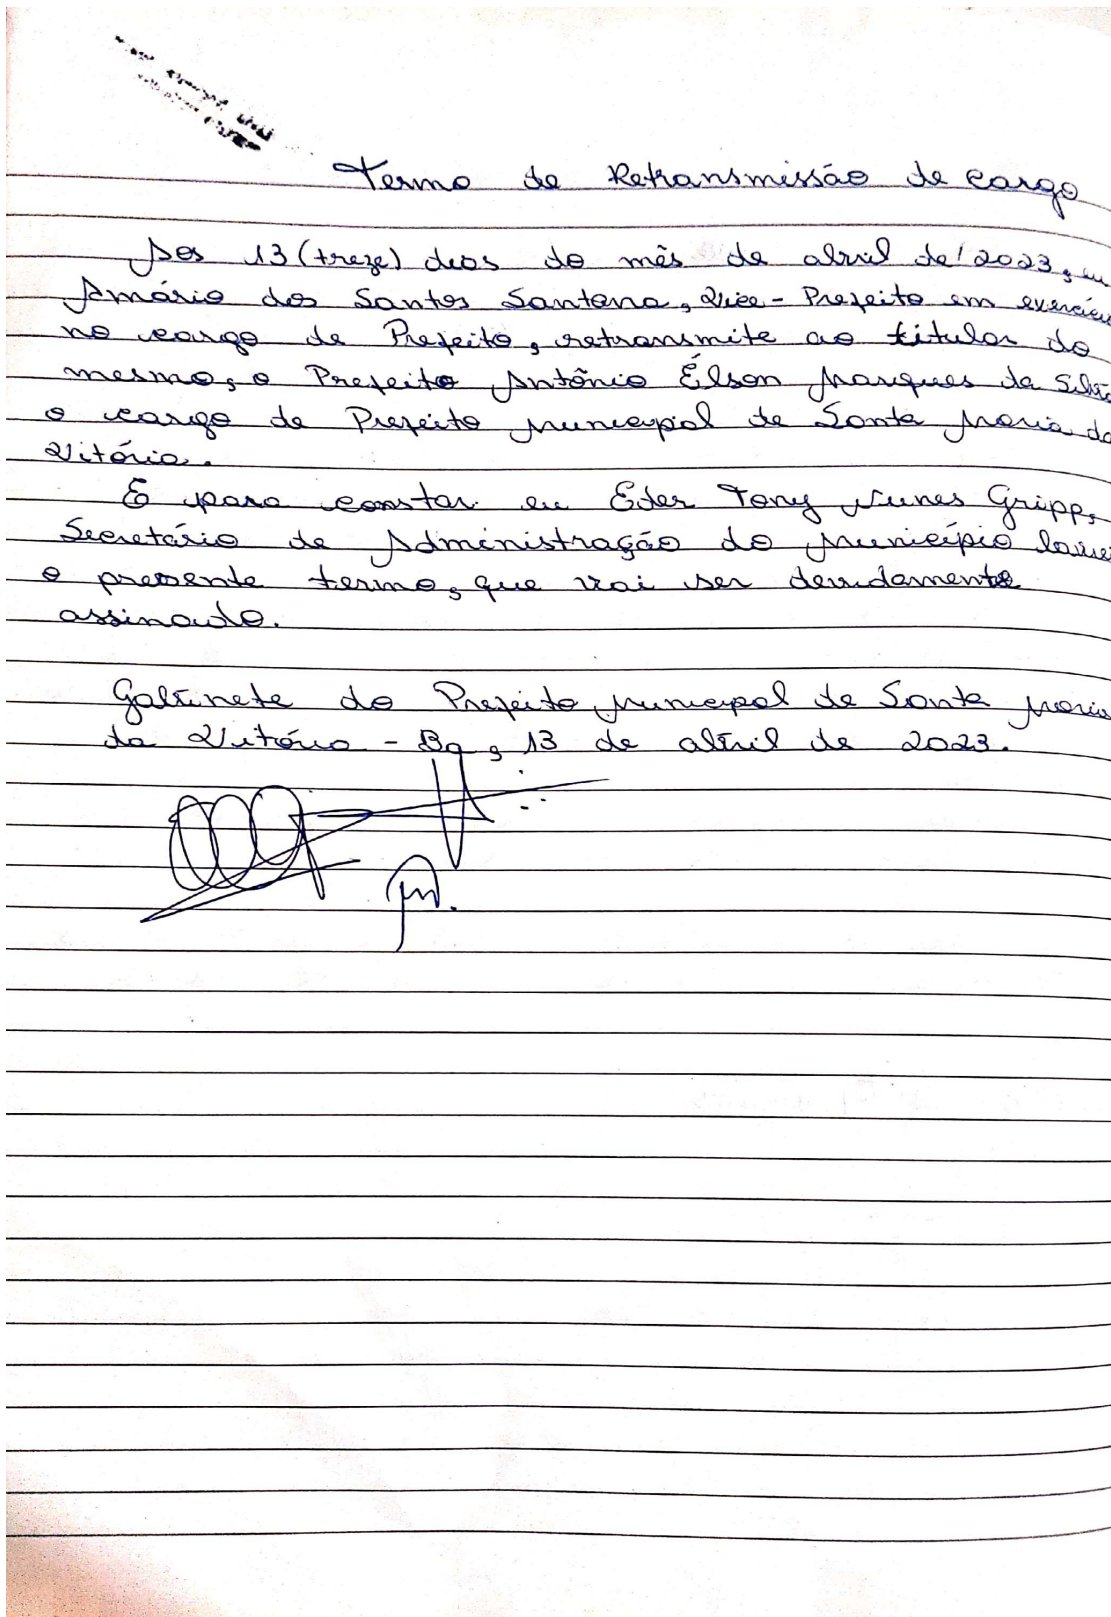 Termo de Retransmissão de cargo
Aos 13 (treze) dias do mês de abril de 2023, eu
Amário dos Santos Santana, Vice-Prefeito em exercício
no cargo de Prefeito, retransmite ao titular do
mesmo, o Prefeito Antônio Élson Marques da Silva
o cargo de Prefeito Municipal de Santa Maria da
Vitória.
E para constar eu Eder Tony Nunes Gripp,
Secretário de Administração do Município lavrei
o presente termo, que vai ser devidamente
assinado.
Gabinete do Prefeito Municipal de Santa Maria
da Vitória - Ba, 13 de abril de 2023.